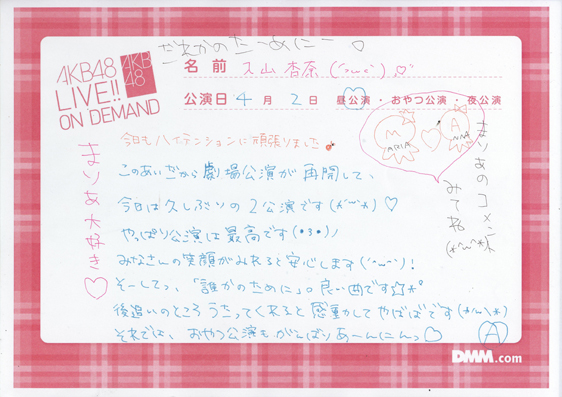 だれかのたーめにー
AKB48
LIVE!!
ON DEMAND
AKB
48
名前 入山杏奈(´^ω^`)
公演日 4月 2日 昼公演・おやつ公演・夜公演
今日もハイテンションに頑張りました
このあいだから劇場公演が再開して、
今日は久しぶりの2公演です(*´ω`*)♡
やっぱり公演は最高です(•3•)ノ
みなさんの笑顔がみれると安心します(´^ω^`)!
そーしてっ、「誰かのために」。良い曲です☆*°
後追いのところ うたってくれると 感動してやばばです(*´ω`*)
それでは、おやつ公演もがんばりあーんにんっ♡
まりあ大好き♡
M
ARIA
A
NNA
まりあのコメント
みてね
(*´ω`*)
A
DMM.com